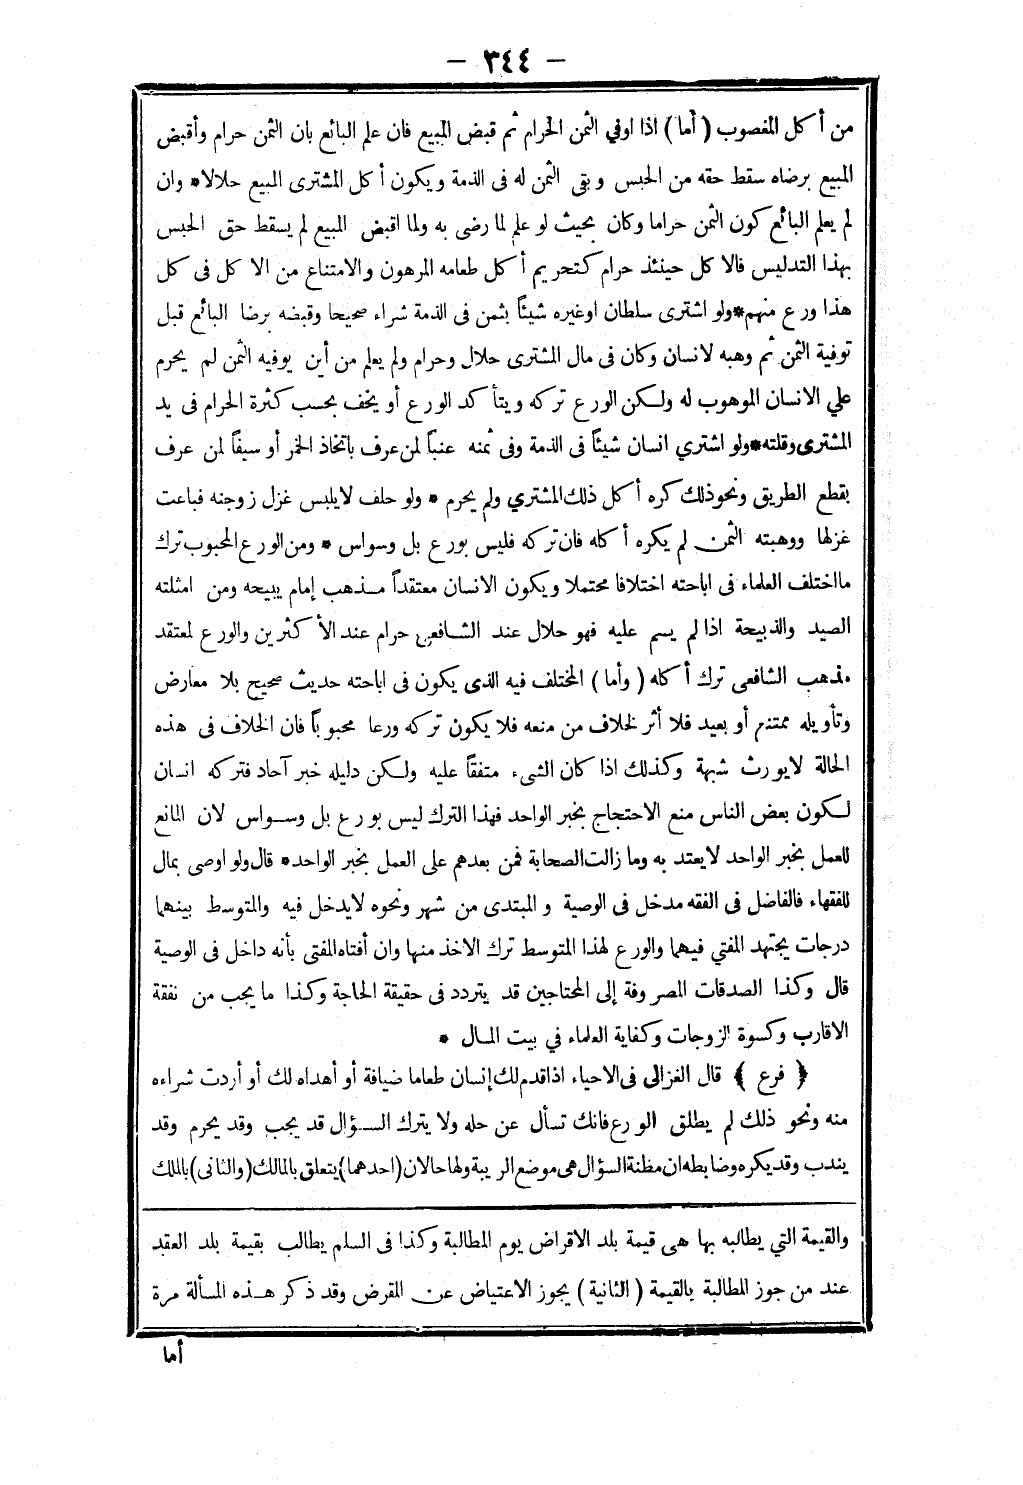 — ٣٤٤ —
من أكل المغصوب (أما) اذا اوفي الثمن الحرام ثم قبض المبيع فان علم البائع بان الثمن حرام وأقبض
المبيع برضاه سقط حقه من الحبس وبقى الثمن له فى الذمة ويكون أكل المشترى المبيع حلالا* وان
لم يعلم البائع كون الثمن حراما وكان بحيث لو علم لما رضى به ولما اقبض المبيع لم يسقط حق الحبس
بهذا التدليس فالاكل حينئذ حرام كتحريم أكل طعامه المرهون والامتناع من الاكل فى كل
هذا ورع منهم*ولو اشترى سلطان اوغيره شيئاً بثمن فى الذمة شراء صحيحا وقبضه برضا البائع قبل
توفية الثمن ثم وهبه لانسان وكان فى مال المشترى حلال وحرام ولم يعلم من أين يوفيه الثمن لم يحرم
علي الانسان الموهوب له ولكن الورع تركه ويتأكد الورع أو يخف بحسب كثرة الحرام فى يد
المشترى وقلته*ولو اشتري انسان شيئاً فى الذمة وفى ثمنه عنباً لمن عرف باتخاذ الخمر أو سيفاً لمن عرف
بقطع الطريق ونحو ذلك كره أكل ذلك المشتري ولم يحرم * ولو حلف لا يلبس غزل زوجته فباعت
غزلها ووهبته الثمن لم يكره أكله فان تركه فليس بورع بل وسواس * ومن الورع المحبوب ترك
ما اختلف العلماء فى اباحته اختلافا محتملا ويكون الانسان معتقداً مذهب إمام يبيحه ومن امثلته
الصيد والذبيحة اذا لم يسم عليه فهو حلال عند الشافعى حرام عند الأكثرين والورع لمعتقد
مذهب الشافعى ترك أكله (وأما) المختلف فيه الذى يكون فى اباحته حديث صحيح بلا معارض
وتأويله ممتنع أو بعيد فلا أثر لخلاف من منعه فلا يكون تركه ورعا محبوباً فان الخلاف فى هذه
الحالة لا يورث شبهة وكذلك اذا كان الشىء متفقاً عليه ولكن دليله خبر آحاد فتركه انسان
لكون بعض الناس منع الاحتجاج بخبر الواحد فهذا الترك ليس بورع بل وسواس لان المانع
للعمل بخبر الواحد لا يعتد به وما زالت الصحابة فمن بعدهم على العمل بخبر الواحد* قال ولو اوصى بمال
للفقهاء فالفاضل فى الفقه مدخل فى الوصية والمبتدى من شهر ونحوه لا يدخل فيه والمتوسط بينهما
درجات يجتهد المفتي فيهما والورع لهذا المتوسط ترك الاخذ منها وان أفتاه المفتى بأنه داخل فى الوصية
قال وكذا الصدقات المصروفة إلى المحتاجين قد يتردد فى حقيقة الحاجة وكذا ما يجب من نفقة
الاقارب وكسوة الزوجات وكفاية العلماء في بيت المال *
﴿ فرع ﴾ قال الغزالى فى الاحياء اذا قدم لك إنسان طعاما ضيافة أو أهداه لك أو أردت شراءه
منه ونحو ذلك لم يطلق الورع فانك تسأل عن حله ولا يترك السؤال قد يجب وقد يحرم وقد
يندب وقد يكره وضابطه ان مظنة السؤال هى موضع الريبة ولها حالان (احدهما) يتعلق بالمالك (والثانى) بالملك
والقيمة التي يطالبه بها هى قيمة بلد الاقراض يوم المطالبة وكذا فى السلم يطالب بقيمة بلد العقد
عند من جوز المطالبة بالقيمة (الثانية) يجوز الاعتياض عن القرض وقد ذكر هذه المسألة مرة
أما